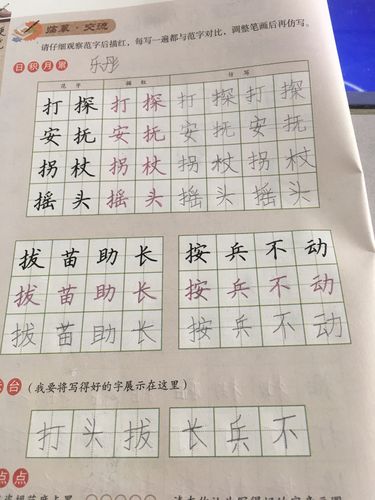 临摹·交流
请仔细观察范字后描红,每写一遍都与范字对比,调整笔画后再仿写。
日积月累 乐彤
范字 描红 仿写
打探打探打探打探
安抚安抚安抚安抚
拐杖拐杖拐杖拐杖
摇头摇头摇头摇头
拔苗助长 按兵不动
拔苗助长 按兵不动
拔苗助长 按兵不动
台(我要将写得好的字展示在这里)
打头拔 长兵不
点点